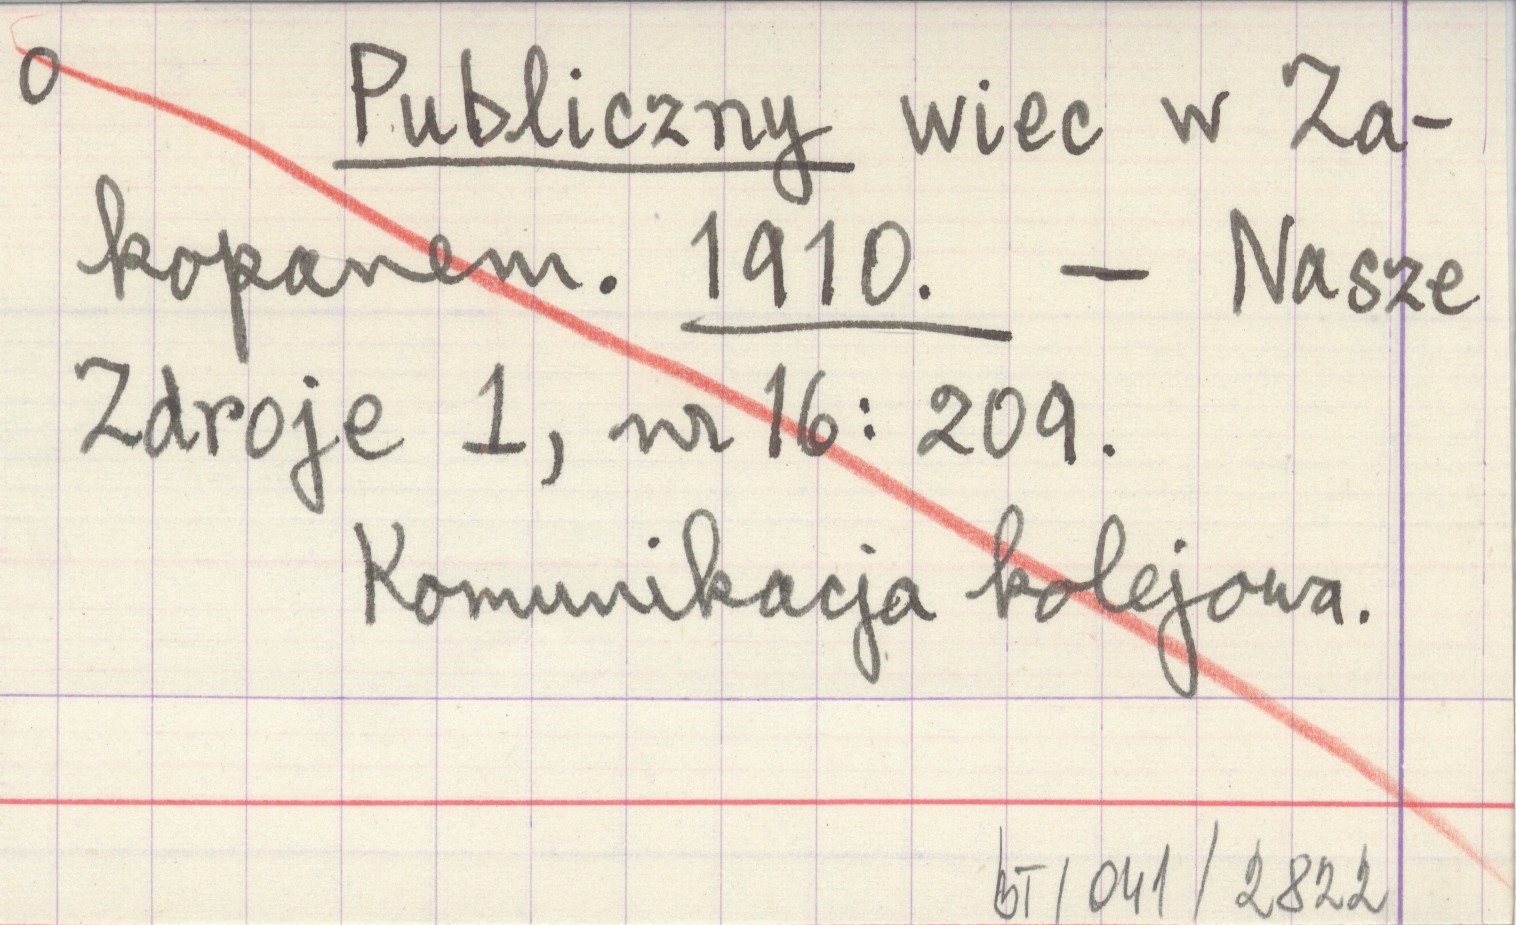 o Publiczny wiec w Za-
kopanem. 1910. – Nasze
Zdroje 1, nr 16: 209.
Komunikacja kolejowa.
BT/041/2822